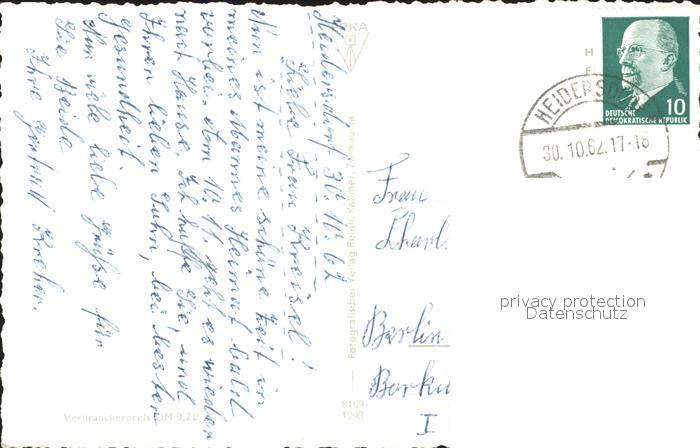 Heidersdorf 30.10.62
Liebe Frau Kreisel!
Nun ist meine schöne Zeit in
meines Mannes Heimat bald
vorbei. Am 10.11. geht es wieder
nach Hause. Ich hoffe Sie, und
Ihren lieben Sohn, bei bester
Gesundheit.
Nun viele liebe Grüße für
Sie Beide
Ihre Gertrud
Verbraucherpreis DM 0,20
Fotografischer Verlag Reinh. Kallmer, Zwickau
8169
1293
DEUTSCHE
DEMOKRATISCHE REPUBLIK
10
HEIDERSD
30.10.62.17-18
Frau
Charl
Berlin
I
privacy protection
Datenschutz